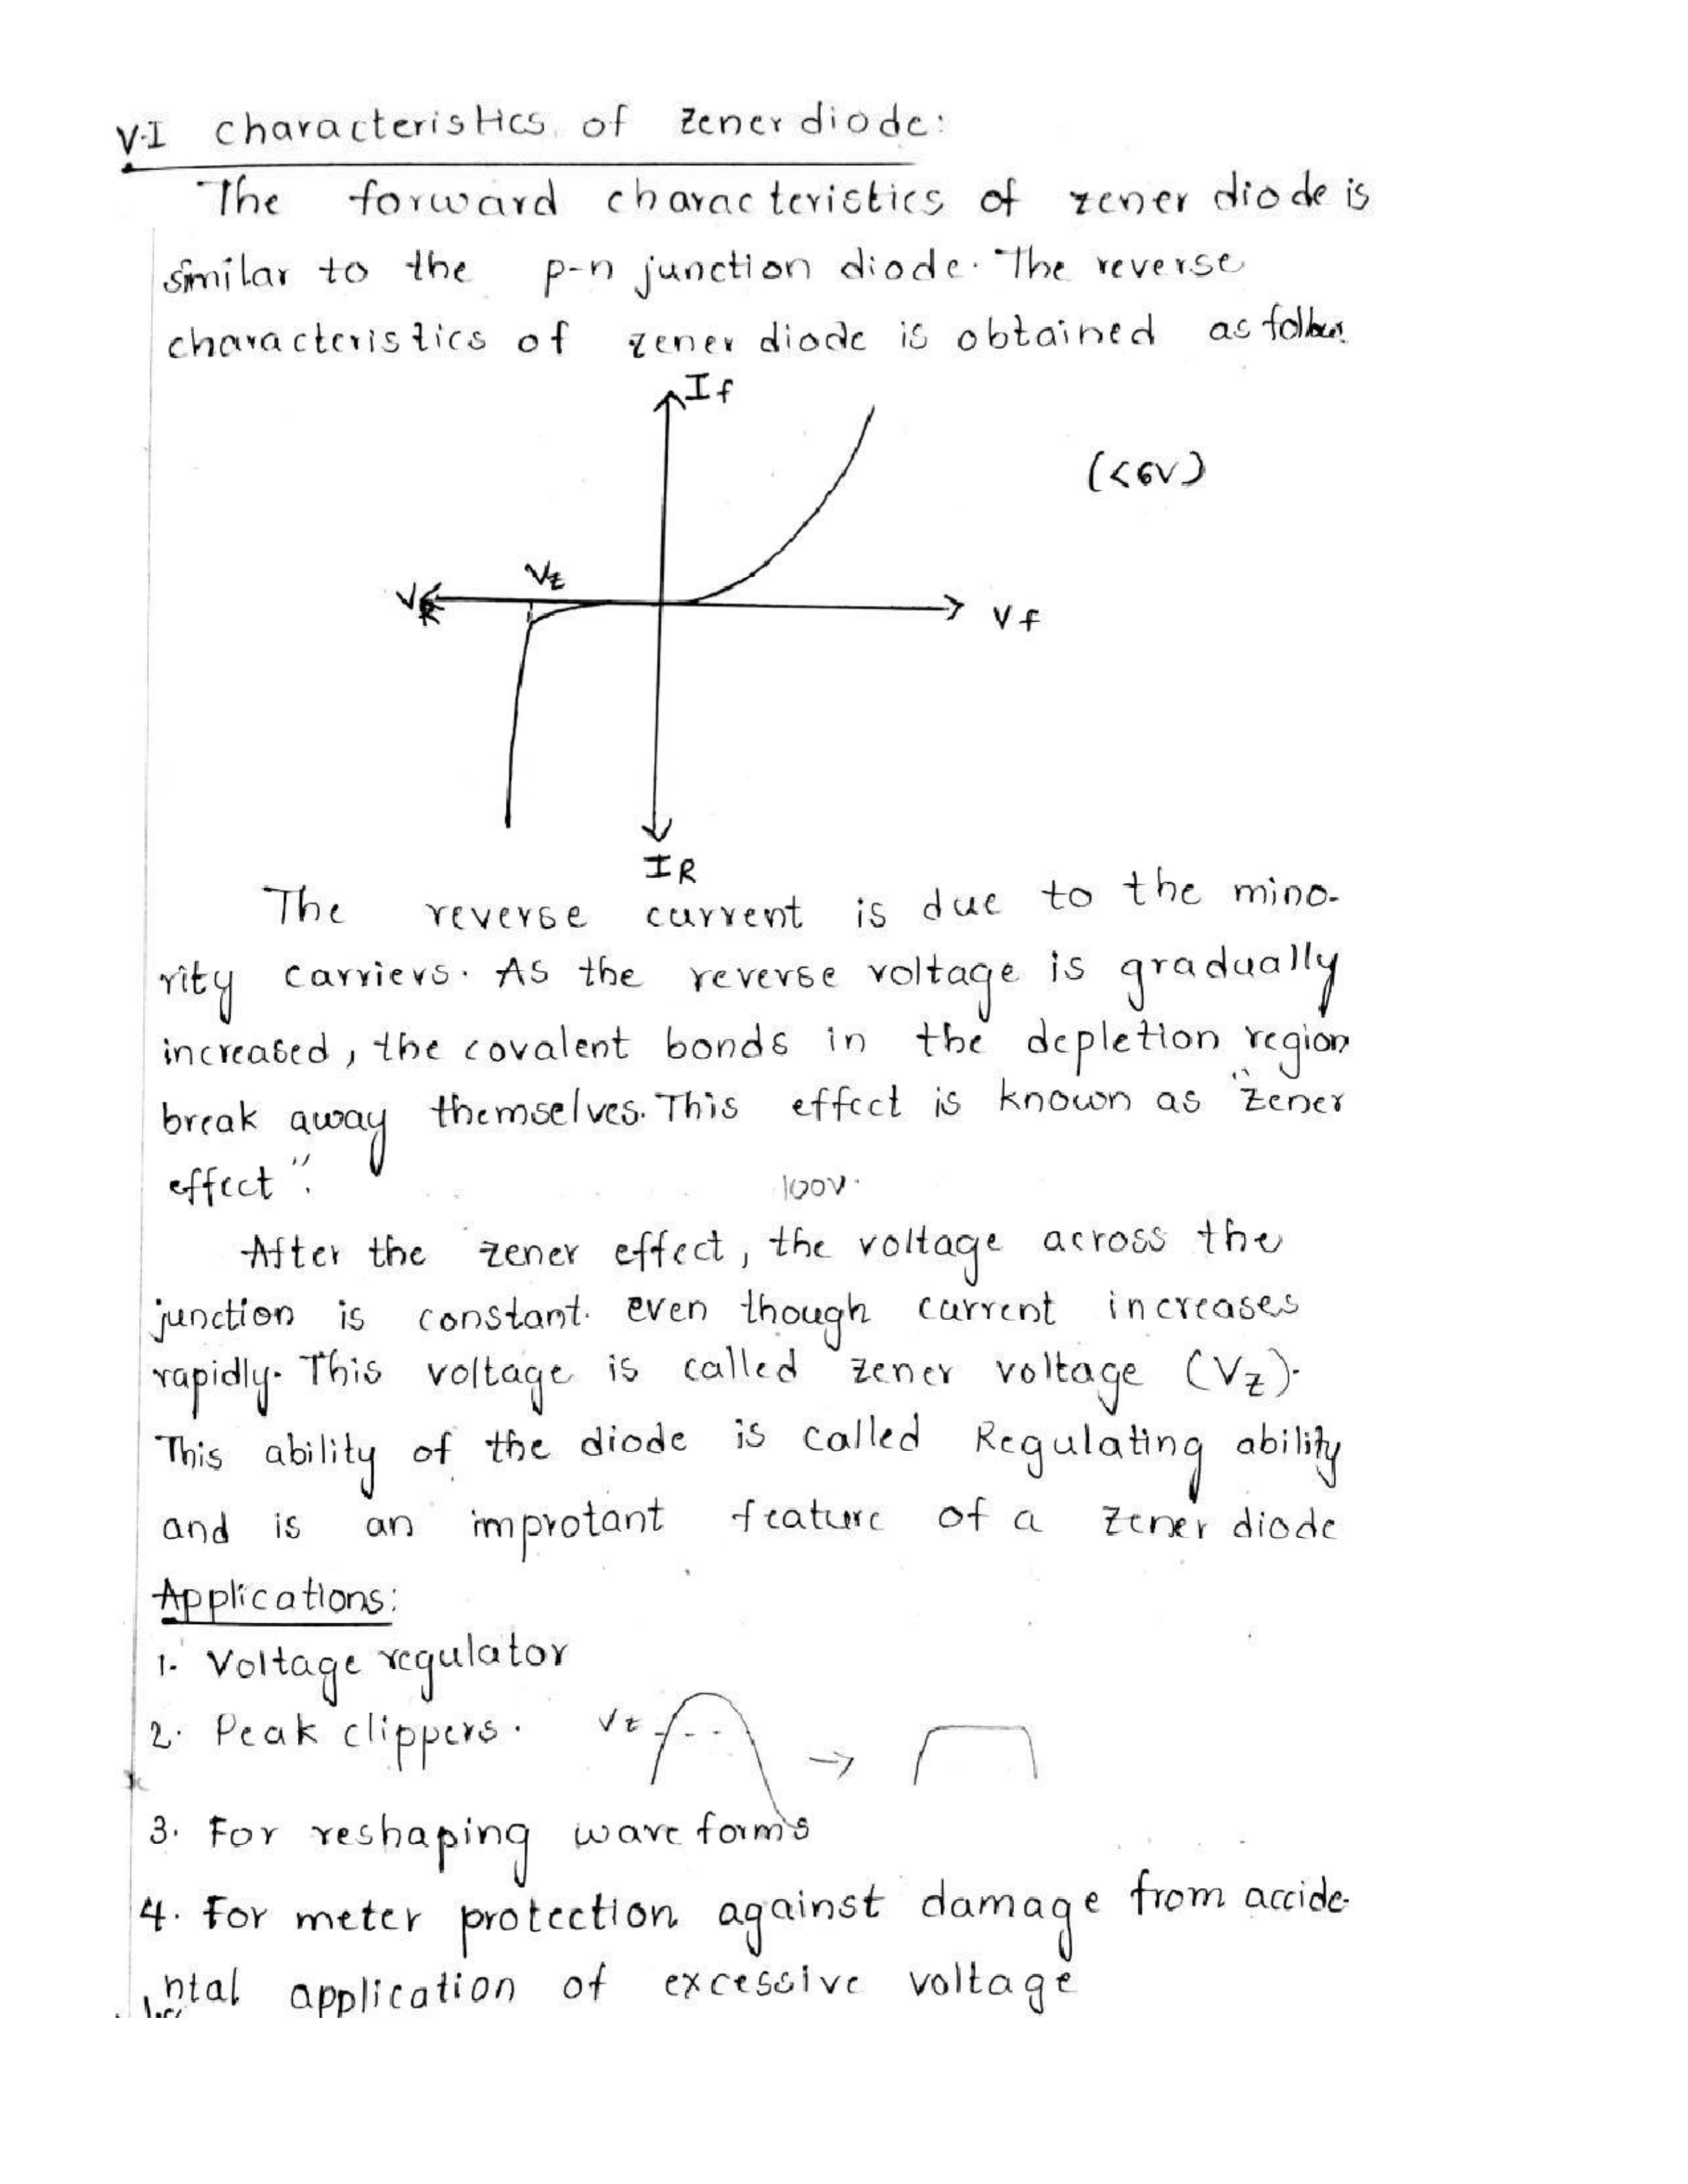 V-I characteristics of Zener diode:
The forward characteristics of zener diode is
similar to the p-n junction diode. The reverse
characteristics of zener diode is obtained as follows
If
(<6V)
Vz
VR
Vf
IR
The reverse current is due to the mino-
rity carriers. As the reverse voltage is gradually
increased, the covalent bonds in the depletion region
break away themselves. This effect is known as "Zener
effect".
100V.
After the zener effect, the voltage across the
junction is constant. even though current increases
rapidly. This voltage is called zener voltage (Vz).
This ability of the diode is called Regulating ability
and is an improtant feature of a Zener diode
Applications:
1. Voltage regulator
2. Peak clippers.
Vz
3. For reshaping wave forms
4. For meter protection against damage from accide-
ntal application of excessive voltage